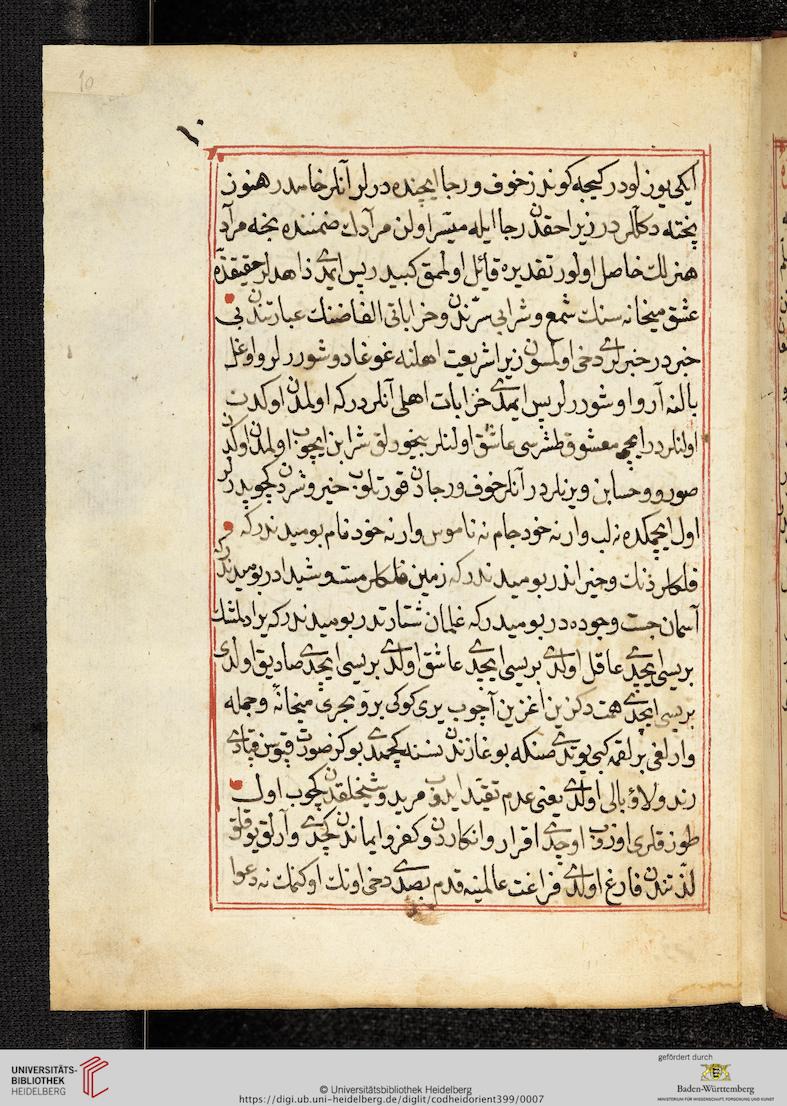 10
١٠
ایکی یوزلودر کیجه کوندز خوف و رجا ایچنده درلر آنلر خامدر هنوز
پخته دکلّردر زیرا حقدن رجا ایله میسّر اولن مرآدك ضمننده نجه مرآد
هنرلك حاصل اولور تقدیره قائل اولمق کبیدر پس ایمدی زاهدلر حقیقتده
عشق میخانه سنك شمع و شرابی سرّندن و خراباتی الفاضنك عبارتندن بی
خبردر خبرلری دخی اولمسون زیرا شریعت اهلنه غوغا دوشوررلر و اوغل
بالنه آرو اوشوررلر پس ایمدی خرابات اهلی آنلردرکه اولمدن اوکدن
اولنلردر ایچی معشوق طشرسی عاشق اولنلر بیخودلق شرابن ایچوب اولمدن اوکدن
صورو و حسابن ویرنلردر آنلر خوف و رجادن قورتلوب خیر و شردن کچوپدرلر
اول ایچمکده نه لب وار نه خود جام نه ناموس وار نه خود نام بو میدندر که
فلكلر دنك و خیراندر بو میدندر که زمین مست و شیدادر بو میدندرکه
آسمان جست وجوده در بو میدر که غلمان شتارتدر بو میدندر که یرادلمشك
بریسی ایچدی عاقل اولدی بریسی ایچدی عاشق اولدی بریسی ایچدی صادیق اولدی
بریسی ایچدی همت دکزین اغزین آچوب یری کوکی بر و بحری میخانهٔ و جمله
وارلغی بر لقمه کبی یوتدی صنکه بوغازندن نسنه کچمدی بو کز صورت قپوسن قپادی
رند و لاؤبالی اولدی یعنی عدم تقیّد ایدوب مرید و شیخلقدن کچوب اول
طوزقلری اوزوب اوچدی اقرار و انکاردن و کفر و ایماندن کچدی و آرلق یوقلق
لذّتندن فارغ اولدی فراغت عالمینه قدم بصدی دخی اونك اوکنمك نه دعوا
UNIVERSITÄTS-
BIBLIOTHEK
HEIDELBERG
© Universitätsbibliothek Heidelberg
https://digi.ub.uni-heidelberg.de/diglit/codheidorient399/0007
gefördert durch
Baden-Württemberg
MINISTERIUM FÜR WISSENSCHAFT, FORSCHUNG UND KUNST